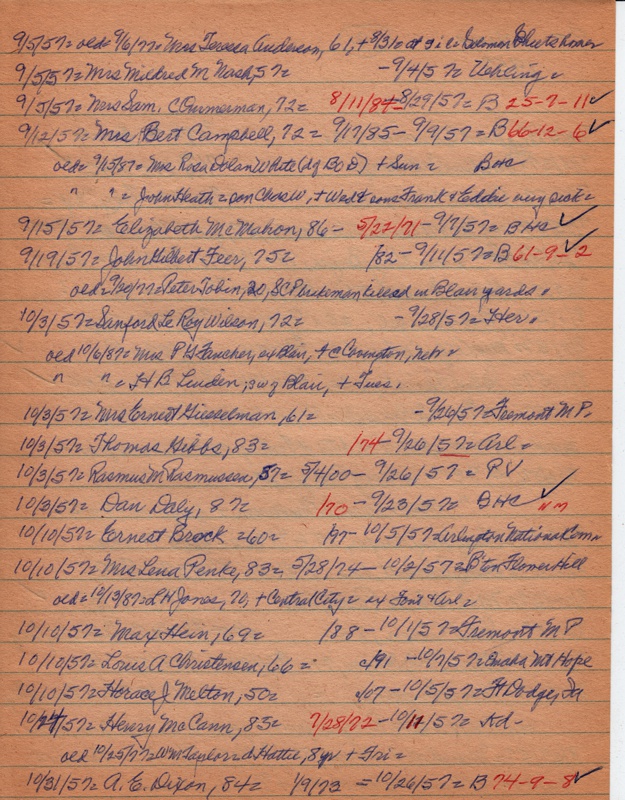 9/5/57= oed= 9/6/77= Mrs Teresa Anderson, 61, + 8/31= at s i c= Solomon
9/5/57= Mrs Mildred M Nash, 57= -9/4/57= Uehling=
9/5/57= Mrs Sam. C Ounmerman, 72= 8/11/84-8/29/57= B 25-7-11✓
9/12/57= Mrs Bert Campbell, 72= 9/17/85-9/9/57= B 66-12-6✓
oed= 9/15/87= Mrs Rosa Dolan White (dg B O D) + Sun= BHC
" "= John Heath= son Chas W, + Wed= sons Frank & Eddie very sick=
9/15/57= Elizabeth McMahon, 86- 5/22/71-9/7/57= BHC ✓
9/19/57= John Hilbert Feer, 75= /82-9/11/57= B 61-9-2 ✓
oed= 9/20/77= Peter Tobin, 20, SCP brakeman killed in Blair yards.
10/3/57= Sanford Le Roy Wilson, 72= -9/28/57= Her=
oed 10/6/87= Mrs P G Fancher, ex Blair, + Covington, Nebr=
" "= H B Linden, sw of Blair, + Tues.
10/3/57= Mrs Ernest Giesselman, 61= -9/26/57= Fremont M P.
10/3/57= Thomas Gibbs, 83= /74-9/26/57= Arl=
10/3/57= Rasmus M Rasmussen, 57= 5/4/00-9/26/57= P V
10/3/57= Dan Daly, 87= /70-9/23/57= BHC ✓ N M
10/10/57= Ernest Brock =60= /97-10/5/57= Arlington National Cem=
10/10/57= Mrs Lena Penke, 83= 5/28/74-10/2/57= Flower Hill
oed= 10/13/87= L H Jones, 70, + Central City= ex Font & Arl=
10/10/57= Max Hein, 69= /88-10/1/57= Fremont M P
10/10/57= Louis A Christensen, 66= c/91-10/7/57= Omaha Mt Hope
10/10/57= Horace J. Melton, 50= c/07-10/5/57= Ft Dodge, Ia
10/24/57= Henry McCann, 83= 7/28/72-10/11/57= Ad-
oed 10/25/77= Wm Taylor= d Hattie, 8 yr + Fri=
10/31/57= A. E. Dixon, 84= 1/9/73 =10/26/57= B 74-9-8✓